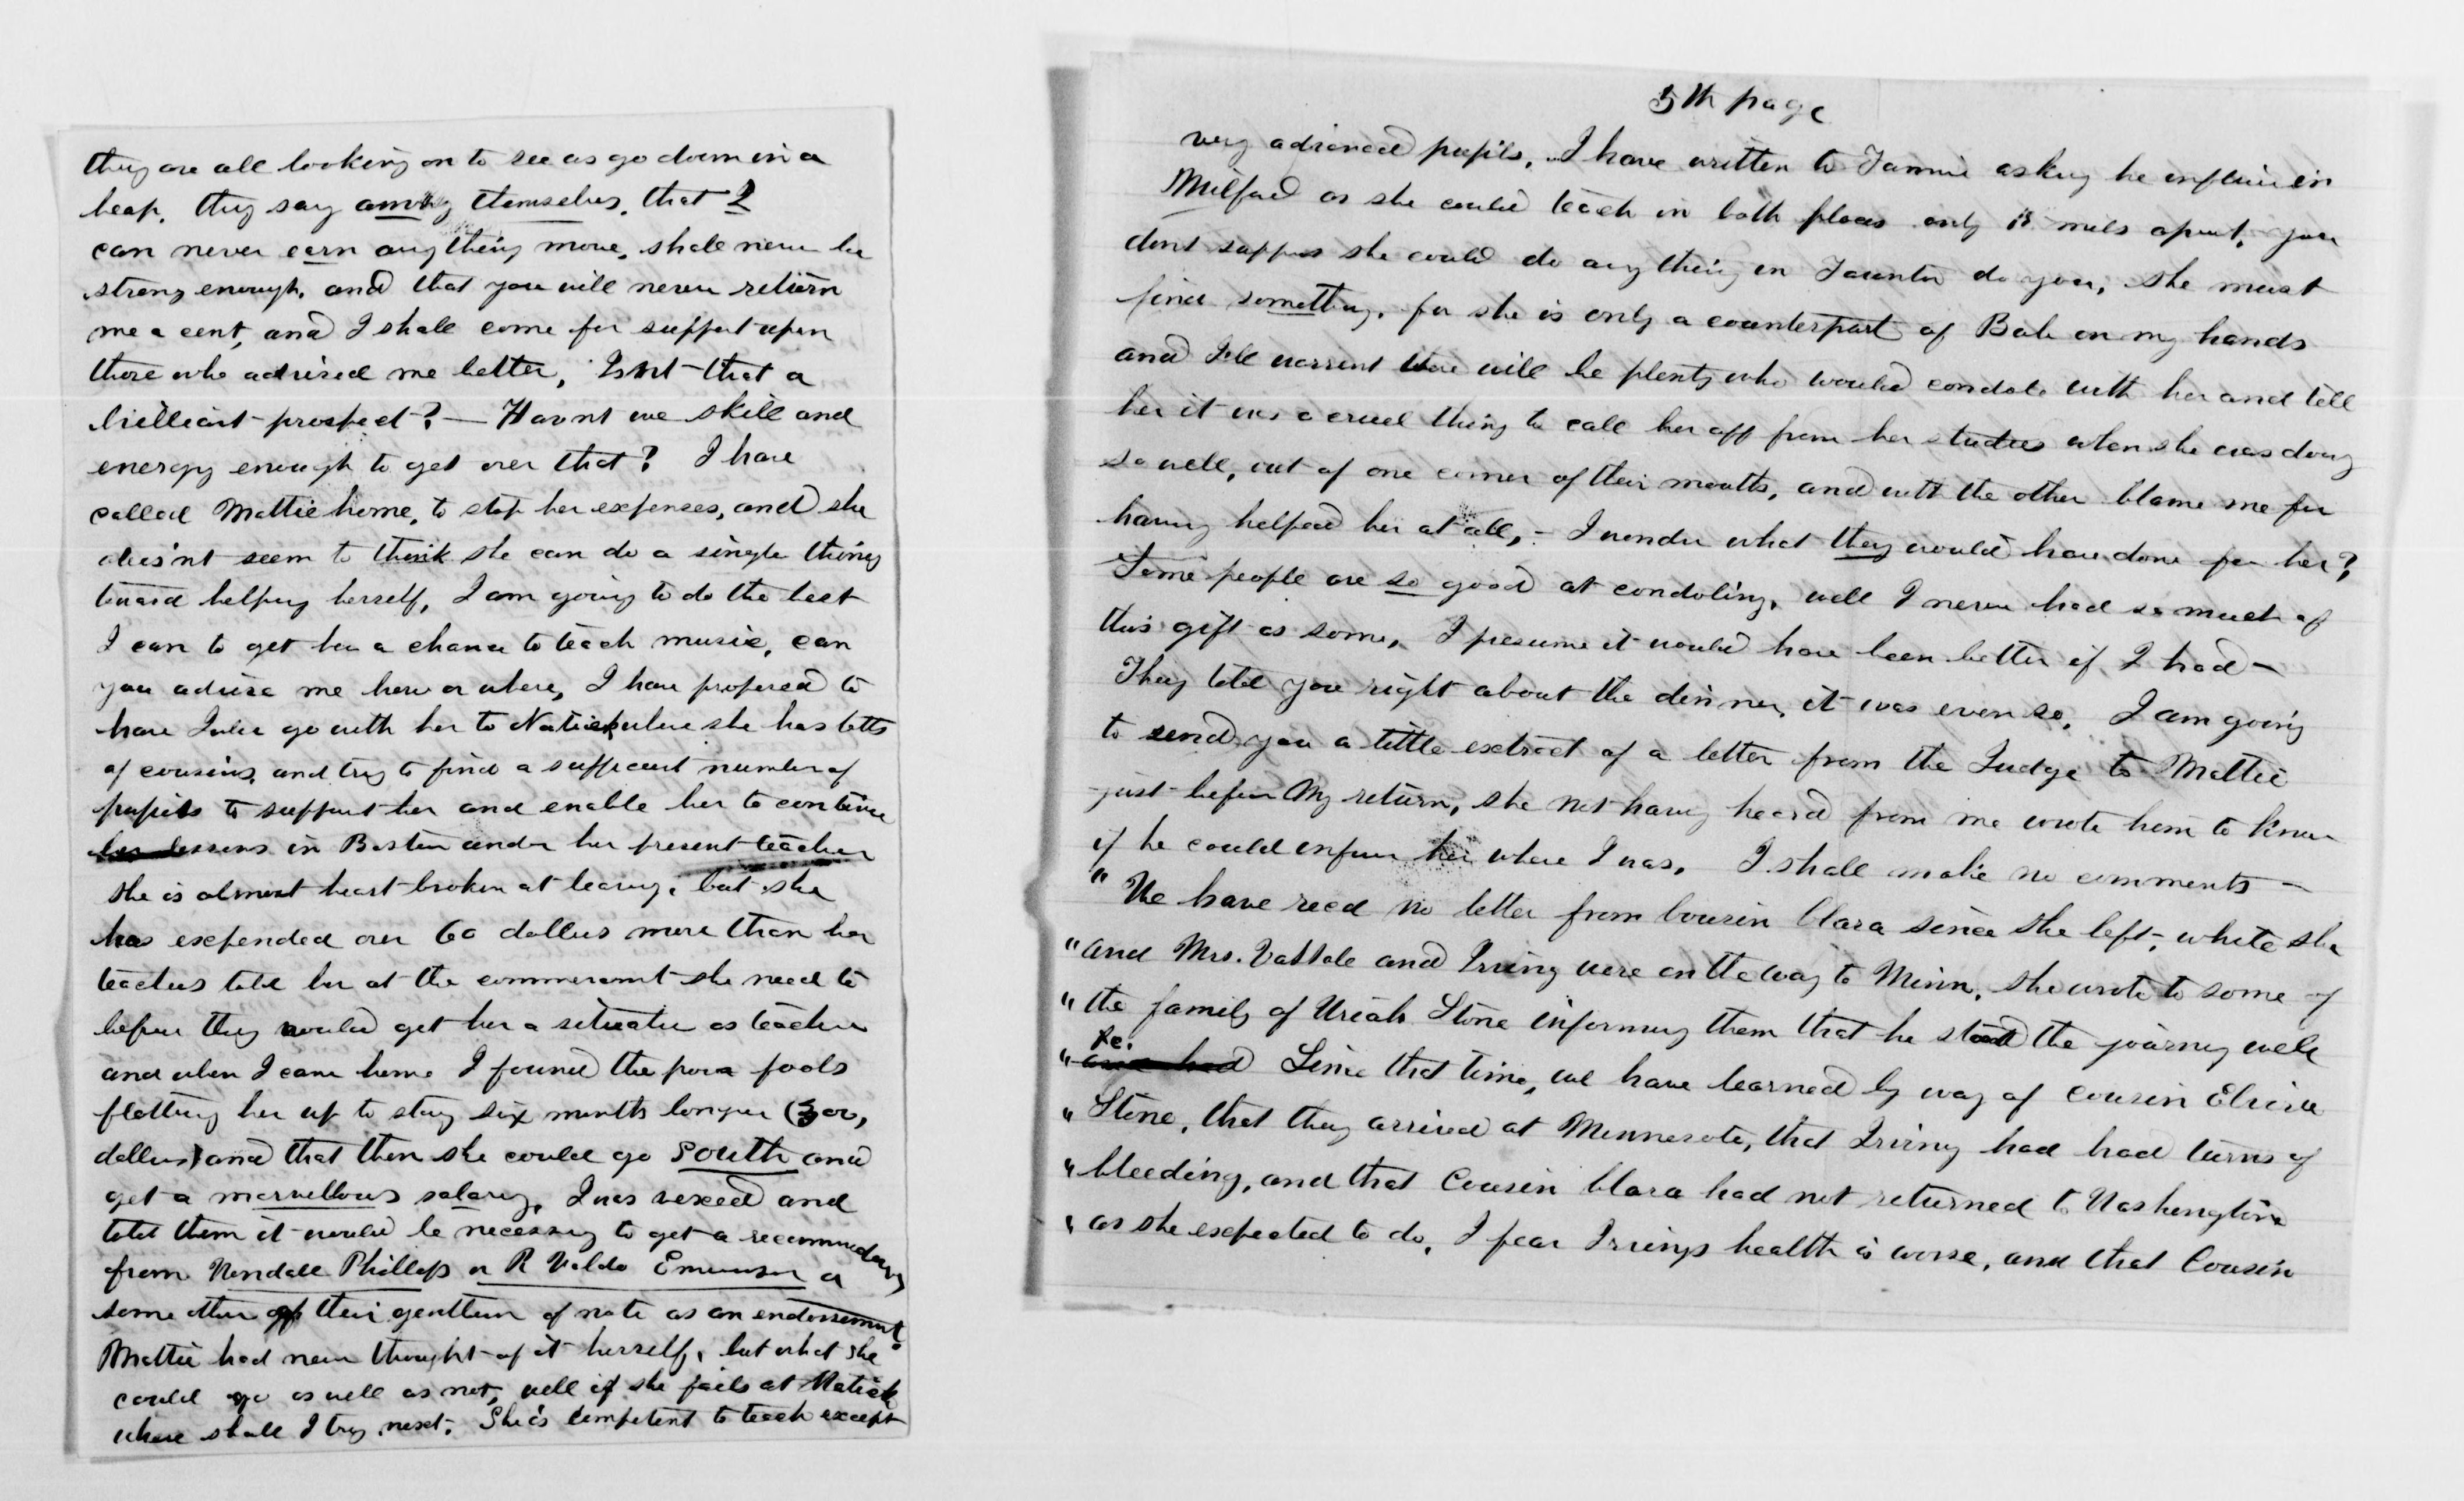 they are all looking on to see us go down in a
heap. they say among themselves. that I
can never earn anything more, shall never be
strong enough. and that you will never return
me a cent, and I shall come for support upon
those who advised me better, Isnt that a
brilliant prospect? — Havnt we skill and
energy enough to get over that? I have
called Mattie home, to stop her expenses, and she
does'nt seem to think she can do a single thing
toward helping herself, I am going to do the best
I can to get her a chance to teach music, can
you advise me how or where, I have proposed to
have Julie go with her to Natick where she has lotts
of cousins, and try to find a sufficient number of
pupils to support her and enable her to continue
her lessons in Boston under her present teacher
she is almost heart broken at leaving, but she
has expended over 60 dollars more than her
teachers told her at the commencemt she need to
before they would get her a situation as teacher
and when I came home I found the poor fools
fletting her up to stay six months longer (300,
dollars) and that then she could go South and
get a marvellous salary, I was vexed and
told them it would be necessary to get a recommendation
from Wendall Phillips or R Valdo Emmerson or
some other of their gentlem of note as an endorsement.
Mattie had never thought of it herself, but what she
could go as well as not, well if she fails at Natick
where shall I try next. She's competent to teach except
5th page
very advanced pupils. I have written to Fannie asking her influence in
Milford as she could teach in both places only 13 miles apart, you
dont suppose she could do any thing in Taunton do you, she must
find something, for she is only a counterpart of Bub on my hands
and I'll warrent there will be plenty who would condole with her and tell
her it was a cruel thing to call her off from her studies when she was doing
so well, out of one corner of their mouths, and with the other blame me for
having helped her at all, – I wonder what they would have done for her?
Some people are so good at condoling, well I never had so much of
this gift as some, I presume it would have been better if I had –
They told you right about the dinner, it was even so, I am going
to send you a little extract of a letter from the Judge to Mattie
just before my return, she not having heard from me wrote him to know
if he could inform her where I was. I shall make no comments –
" We have recd no letter from Cousin Clara since she left, while she
" and Mrs. Vassale and Irving were on the way to Minn. she wrote to some of
" the family of Uriah Stone informing them that he stood the journey well
&c.
" and had Since that time, we have learned by way of cousin Elvira
" Stone, that they arrived at Minnesota, that Irving had had turns of
" bleeding, and that Cousin Clara had not returned to Washington
" as she expected to do, I fear Irvings health is worse, and that Cousin